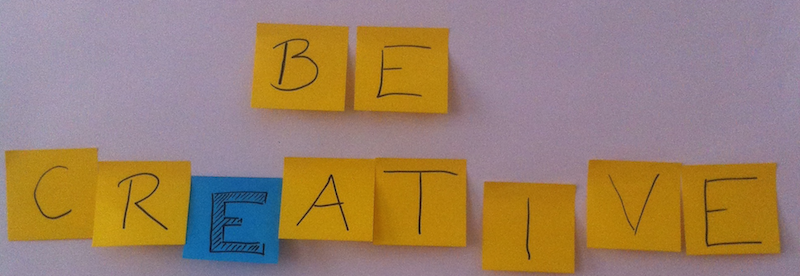 BE
CREATIVE